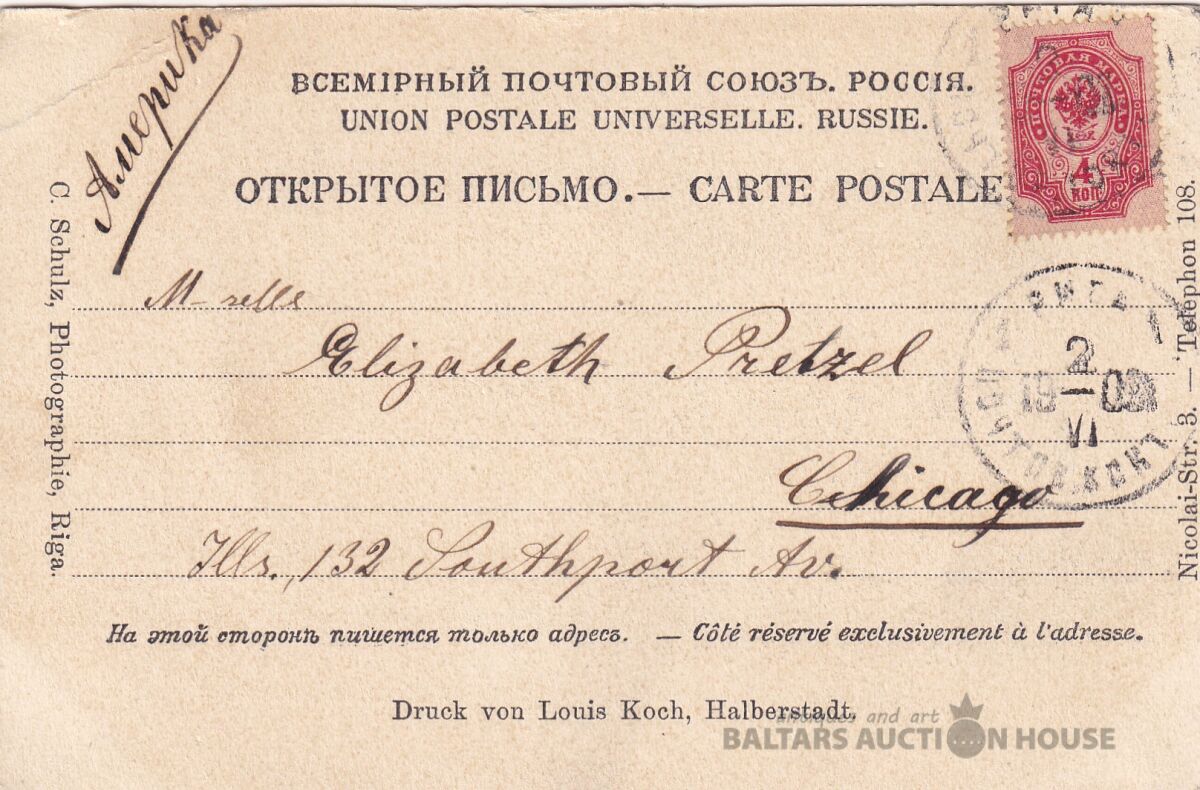 Америка
ВСЕМІРНЫЙ ПОЧТОВЫЙ СОЮЗЪ. РОССІЯ.
UNION POSTALE UNIVERSELLE. RUSSIE.
ОТКРЫТОЕ ПИСЬМО.— CARTE POSTALE
ПОЧТОВАЯ МАРКА
4
КОП
C. Schulz, Photographie, Riga.
Nicolai-Str. 3. — Telephon 108.
M-selle
Elizabeth Pretzel
РИГА
2
VI
Chicago
Ills., 132 Southport Av.
На этой сторонѣ пишется только адресъ. — Côté réservé exclusivement à l'adresse.
Druck von Louis Koch, Halberstadt.
antiques and art
BALTARS AUCTION HOUSE